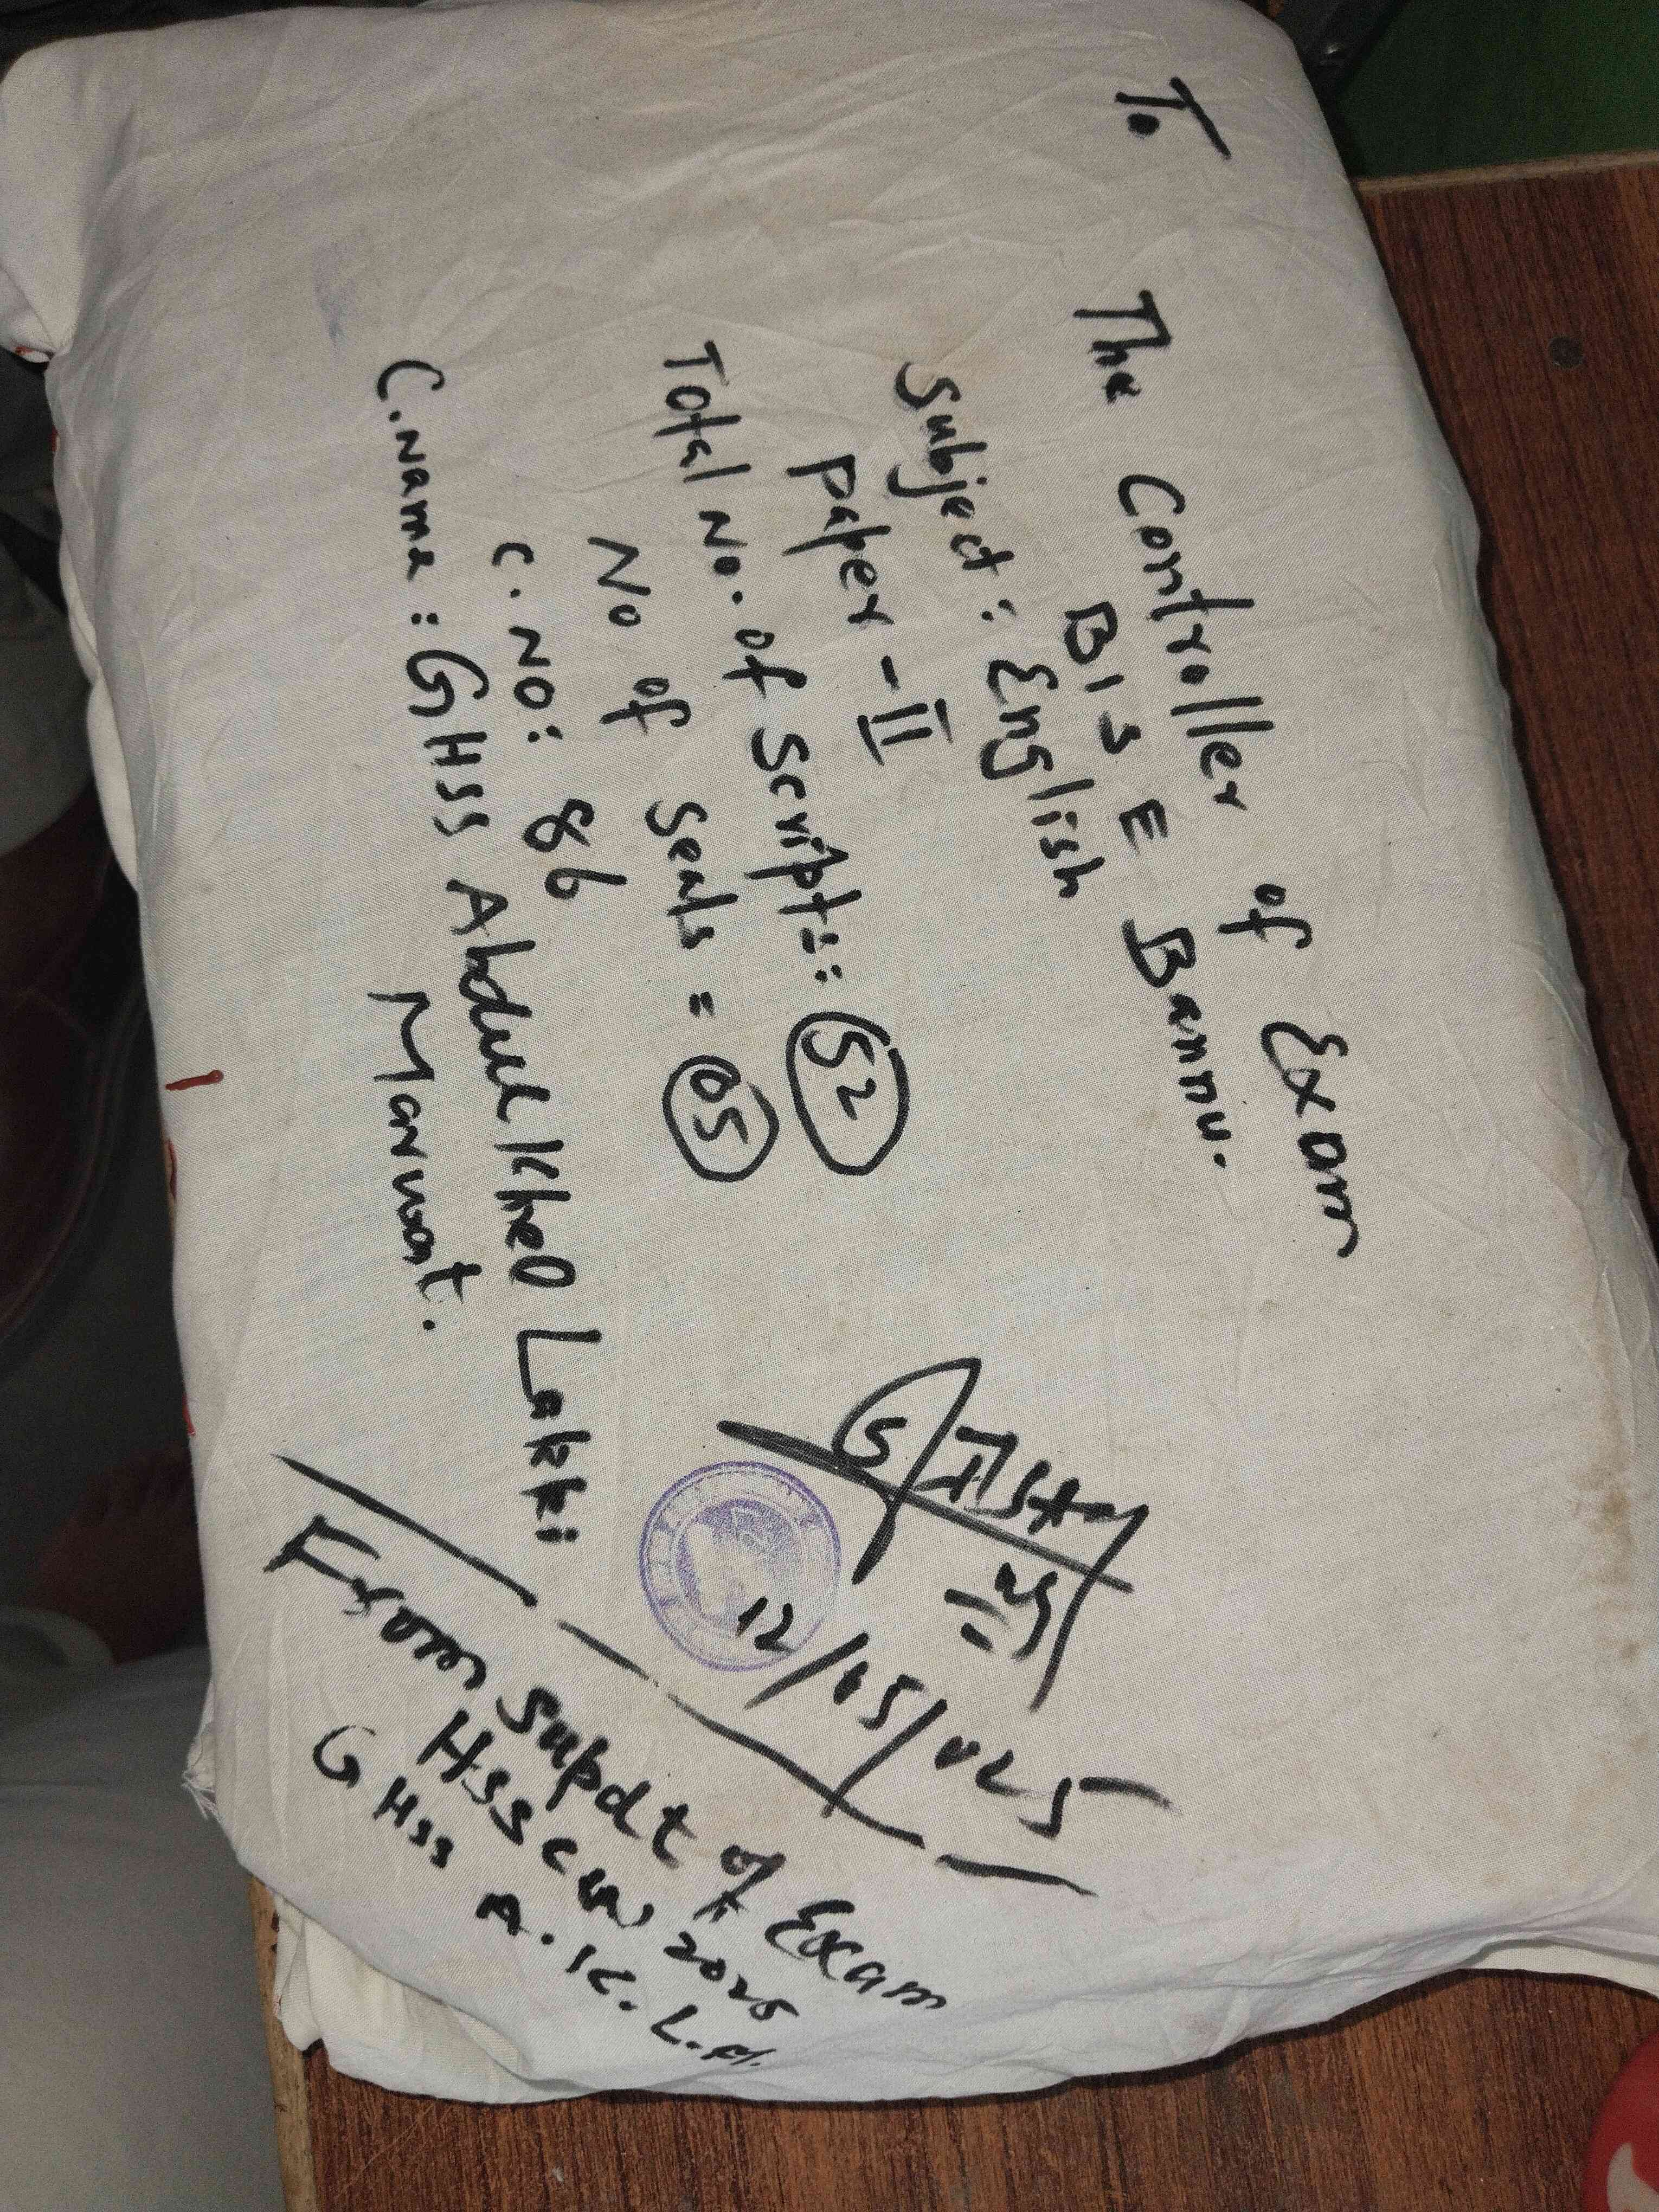 To
The Controller of Exam
BISE Bannu.
Subject: English
Paper-II
Total No. of Script=: 52
No of Seals = 05
C.NO: 86
C.Name: GHSS Abdul Khel Lakki
Marwat.
12/05/025
From Supdt of Exam
HSSC 2025
GHSS A.K.L.M.